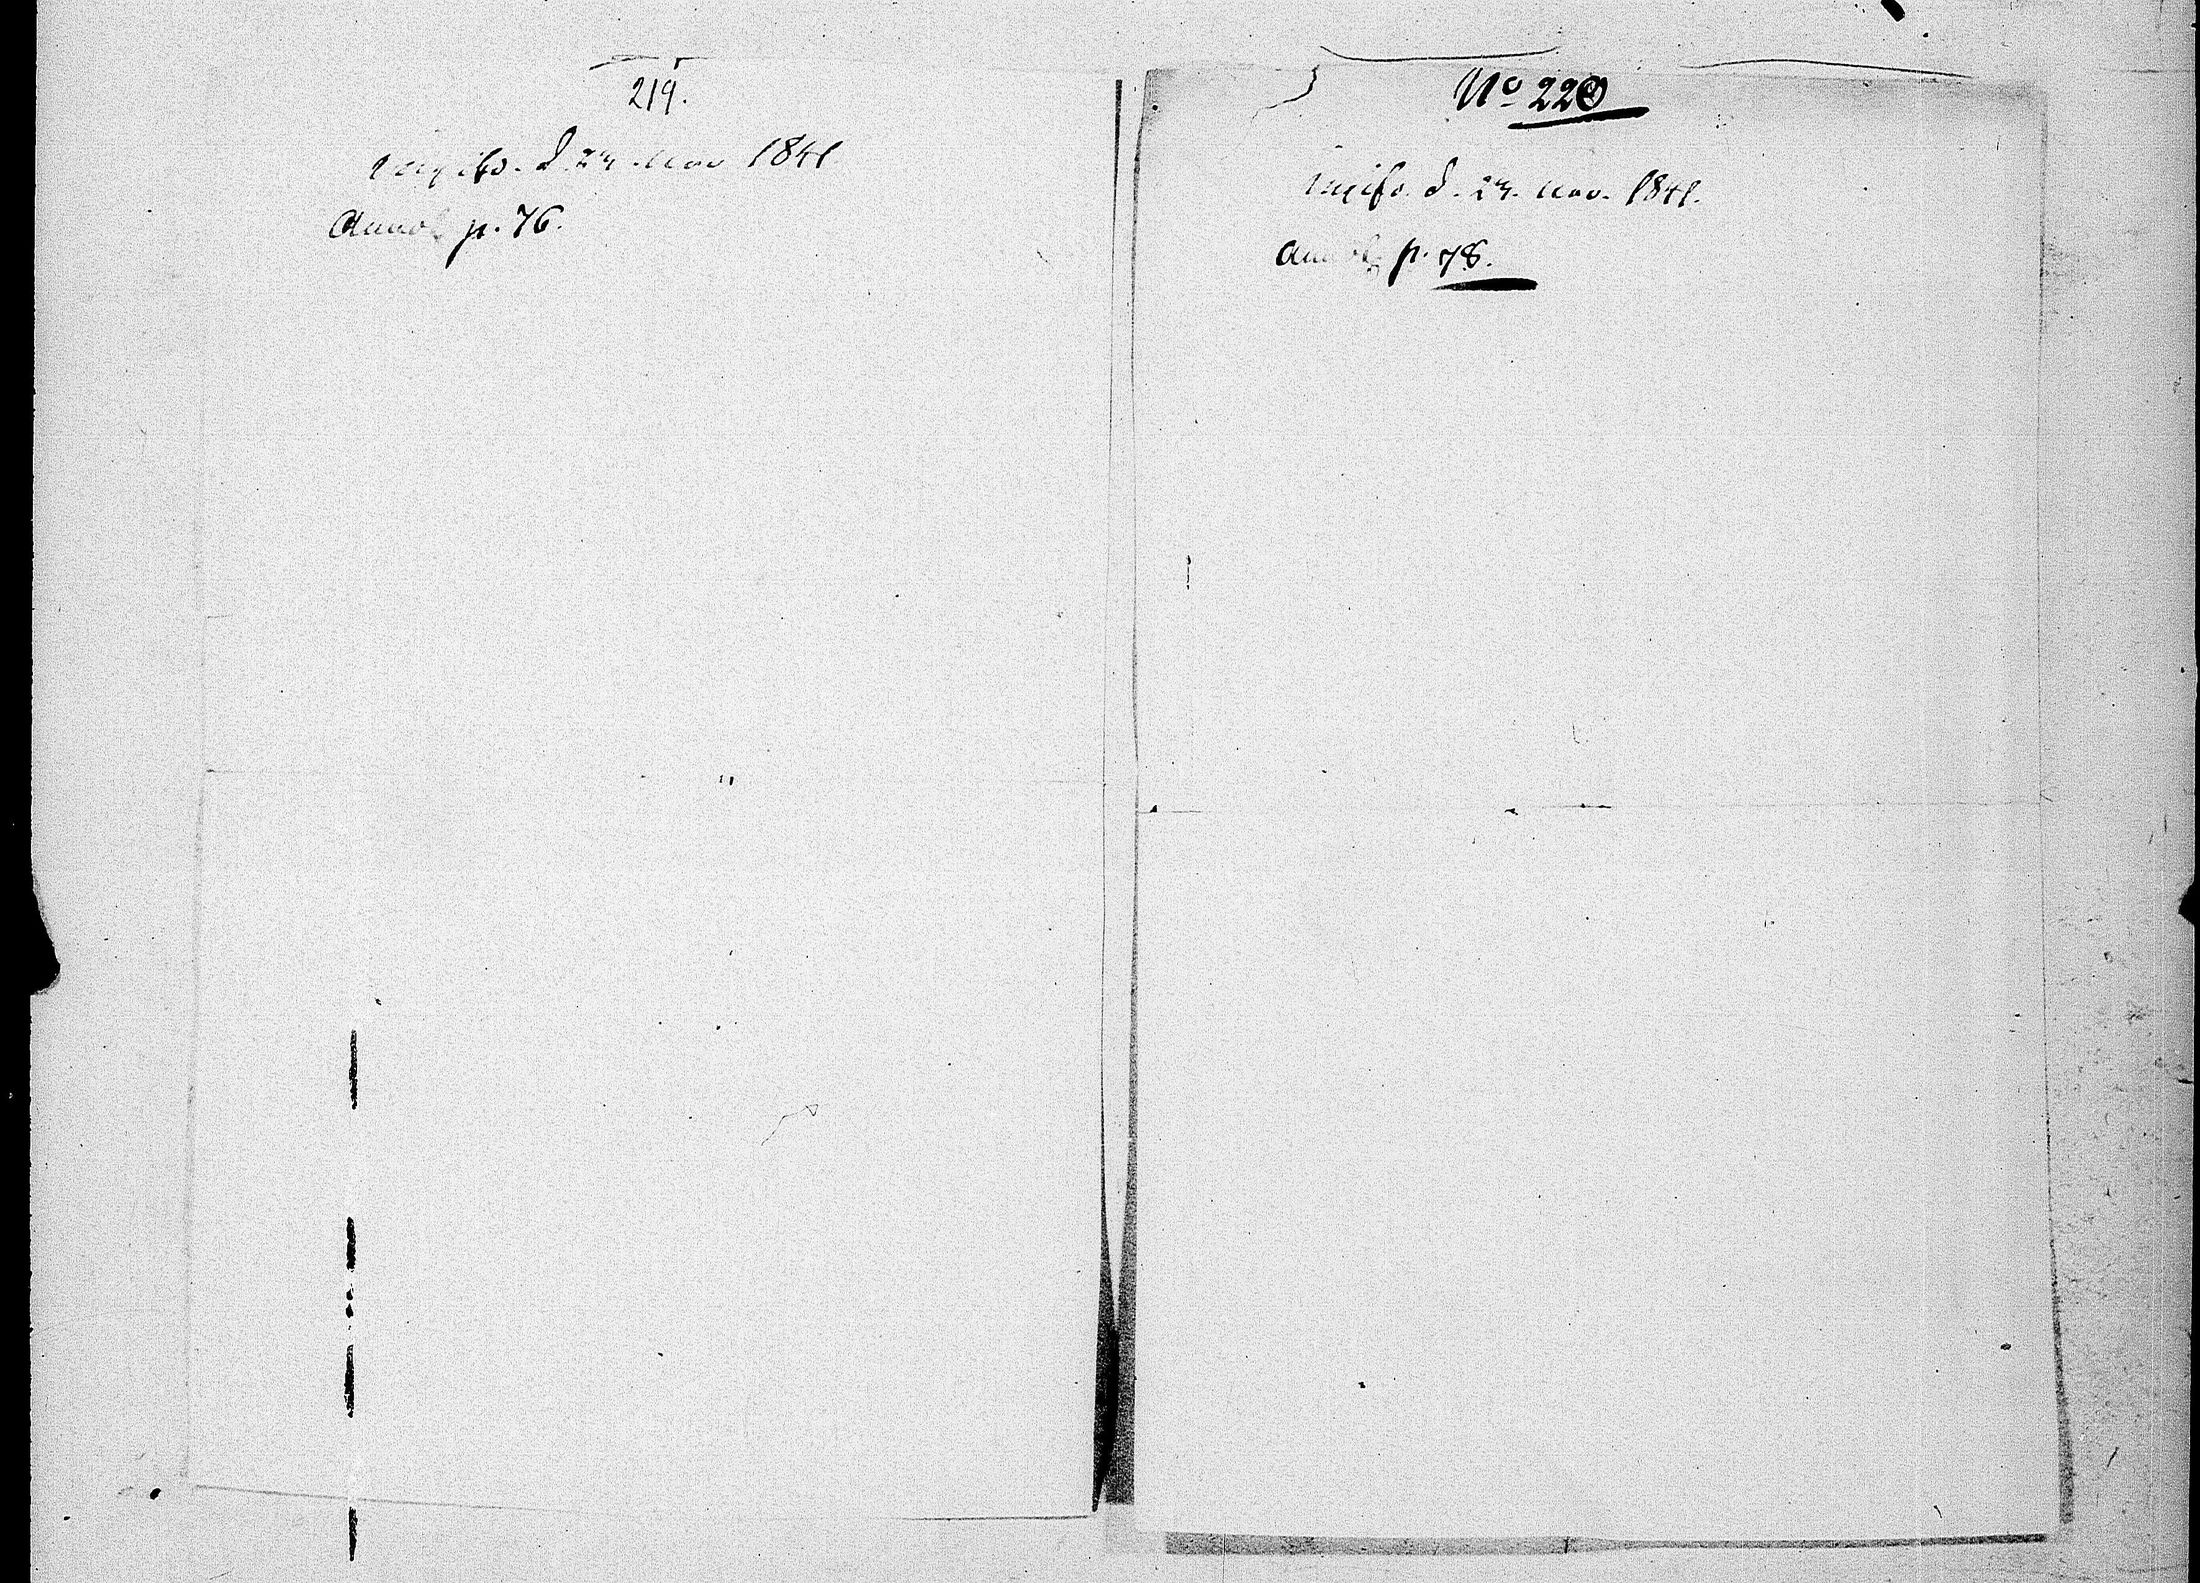 219.
d. 23 Nov 1841
p. 76.
No 220
d. 23. Nov. 1841.
p. 78.